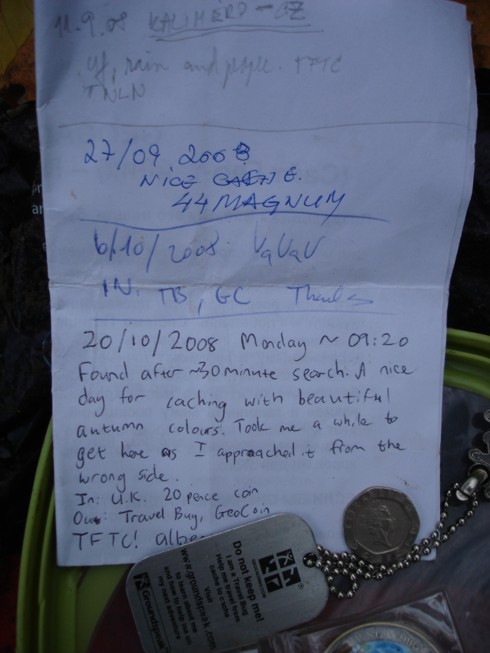 11.9.08 KALIMERO-CZ
uf, rain and people. TFTC
TNLN
27/09 2008
NICE CACHE.
44 MAGNUM
6/10/2008 VaVaV
IN. TB, GC Thanks
20/10/2008 Monday ~ 09:20
Found after ~30 minute search. A nice
day for caching with beautiful
autumn colours. Took me a while to
get here as I approached it from the
wrong side.
In: U.K. 20 pence coin
Out: Travel Bug, GeoCoin
TFTC! albe
Do not keep me!
I am a Travel Bug
Help me travel from
cache to cache
Visit
www.groundspeak.com
to learn about me
and how to help me on
my next adventure
Groundspeak